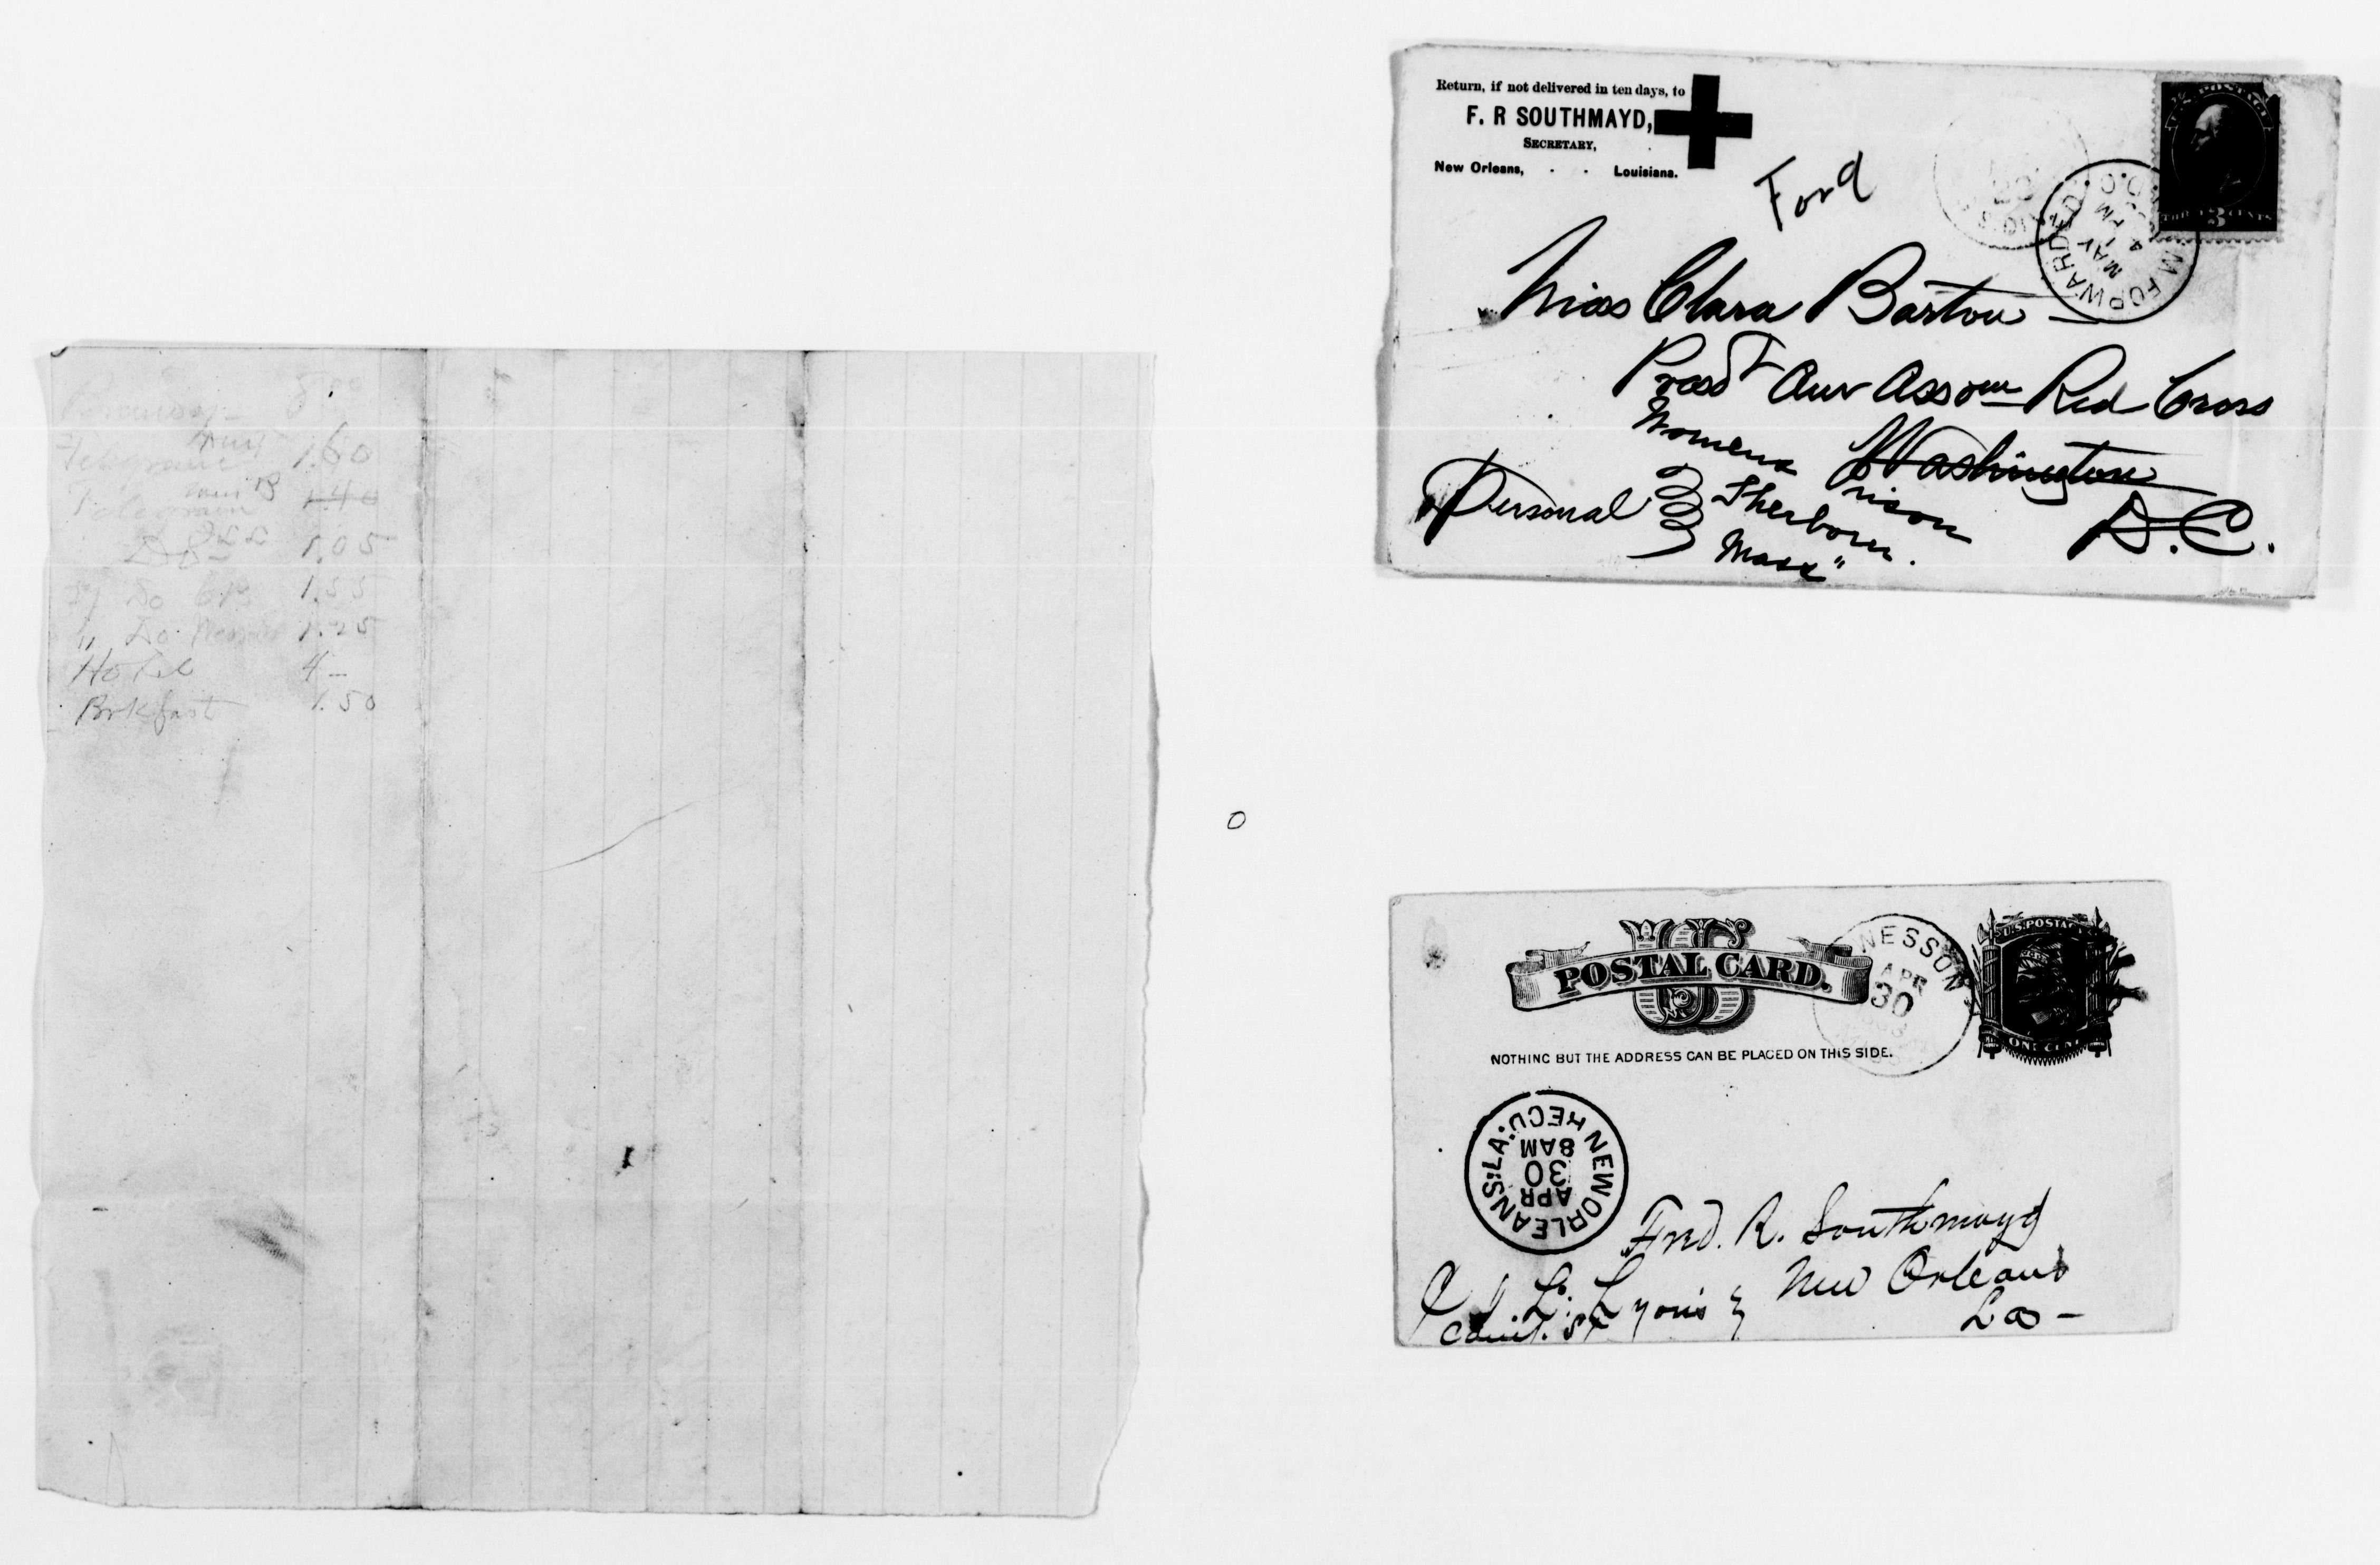 8.00
Telegram 1.60
Telegram 1.40
Do 1.05
Do 1.55
" Do 1.25
Hotel 4 –
Brkfast 1.50
Return, if not delivered in ten days, to
F. R SOUTHMAYD,
SECRETARY,
New Orleans, . . Louisiana.
Ford
U.S. POSTAGE
3 CENTS
FORWARDED
MAY
4 PM
Miss Clara Barton
Presdt Amr Assocn Red Cross
Washington
D.C.
Personal
Womens Prison
Sherborn.
Mass"
US
POSTAL CARD.
NOTHING BUT THE ADDRESS CAN BE PLACED ON THIS SIDE.
WESSON
APR
30
U.S. POSTAGE
ONE CENT
NEW ORLEANS, LA.
REC'D
APR
30
8 AM
Fred. R. Southmayd
New Orleans
La –
I. L. Lyons
Canl. St